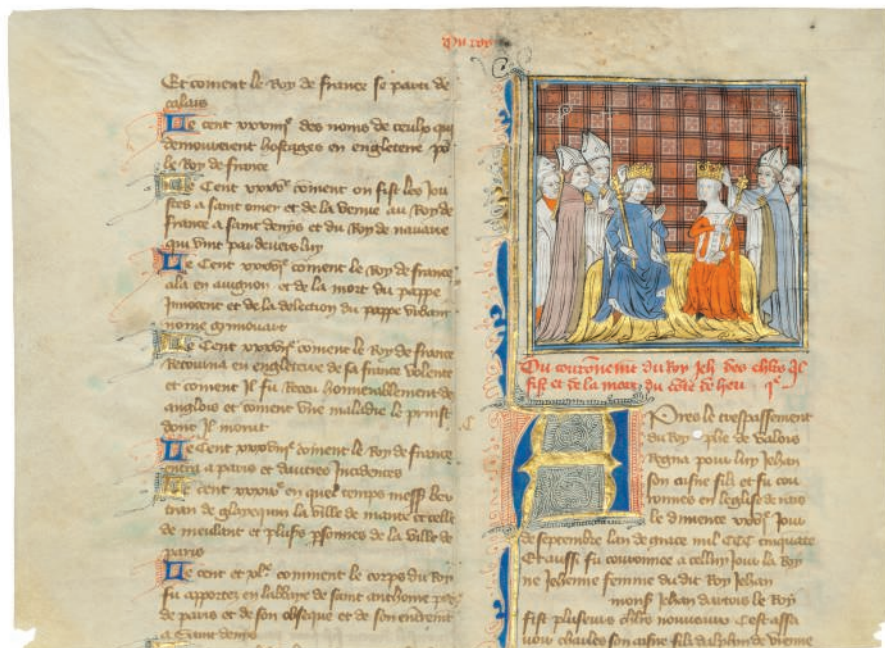 Du roy
Et coment le Roy de france se parti de
calais
Le cent xxxiiije des noms de ceulx qui
demourerent hostages en engleterre po
le Roy de france
Le Cent xxxve coment on fist les Jou
stes a saint omer et de la venue au Roy de
france a saint denys et du Roy de navarre
qui vint par devers luy
Le Cent xxxvje coment le Roy de france
ala en avignon et de la mort du pappe
Innocent et de la election du pappe urbain
nome grimouart
Le Cent xxxvije coment le Roy de france
Retourna en engleterre de sa france volente
et coment Il fu Receu honnorablement de
anglois et coment Une maladie le prinst
dont Il morut
Le Cent xxxviije coment le Roy de france
entra a paris et dautres Incidences
Le cent xxxixe en quel temps mess ber
tran de glayequin la ville de mante et celle
de meulant et plusrs psonnes de la ville de
paris
Le cent et xle comment le corps du Roy
fu apportez en labbaye de saint anthoine pres
de paris et de son obseque et de son enterent
a Saint denys
Du couronemt du Roy Jeh des chlrs Il
fist et de la mort du cote de heu je
Apres le trespassement
du Roy phe de Valois
Regna pour luy Jehan
son aisne filz et fu cou
ronnes en leglise de rains
le dimence xxvje Jour
de septembre lan de grace mil CCC cinquate
Et aussi fu couronnee a celluy Jour la Roy
ne Jehenne femme du dit Roy Jehan
mons Jehan dartois le Roy
fist pluseurs chlrs nouveaux Cest assa
voir charles son aisne filz dalphin de vienne